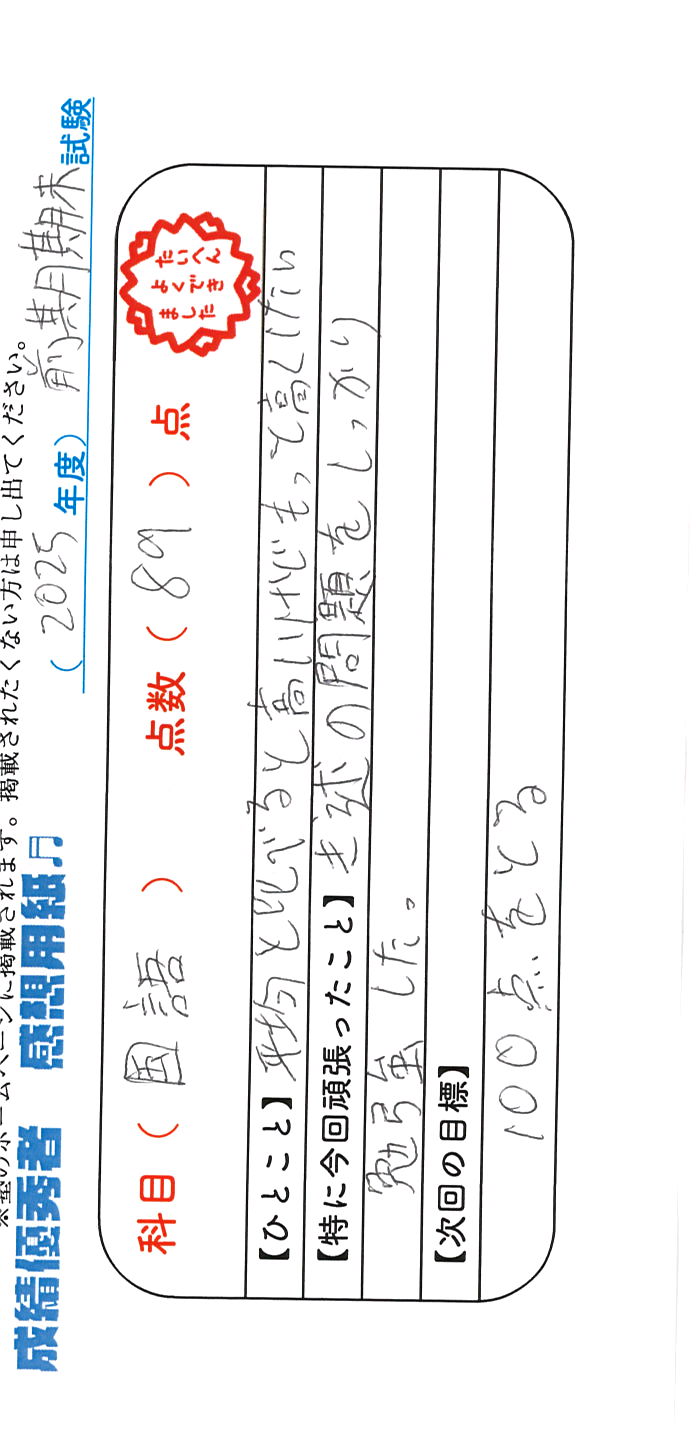 ※塾のホームページに掲載されます。掲載されたくない方は申し出てください。
成績優秀者 感想用紙♫
(2025年度) 前期期末試験
科目(国語) 点数(89)点
たいへん
よくでき
ました
【ひとこと】平均とくらべると高いけどもっと高くしたい
【特に今回頑張ったこと】き述の問題をしっかり
勉強した。
【次回の目標】
100点をとる